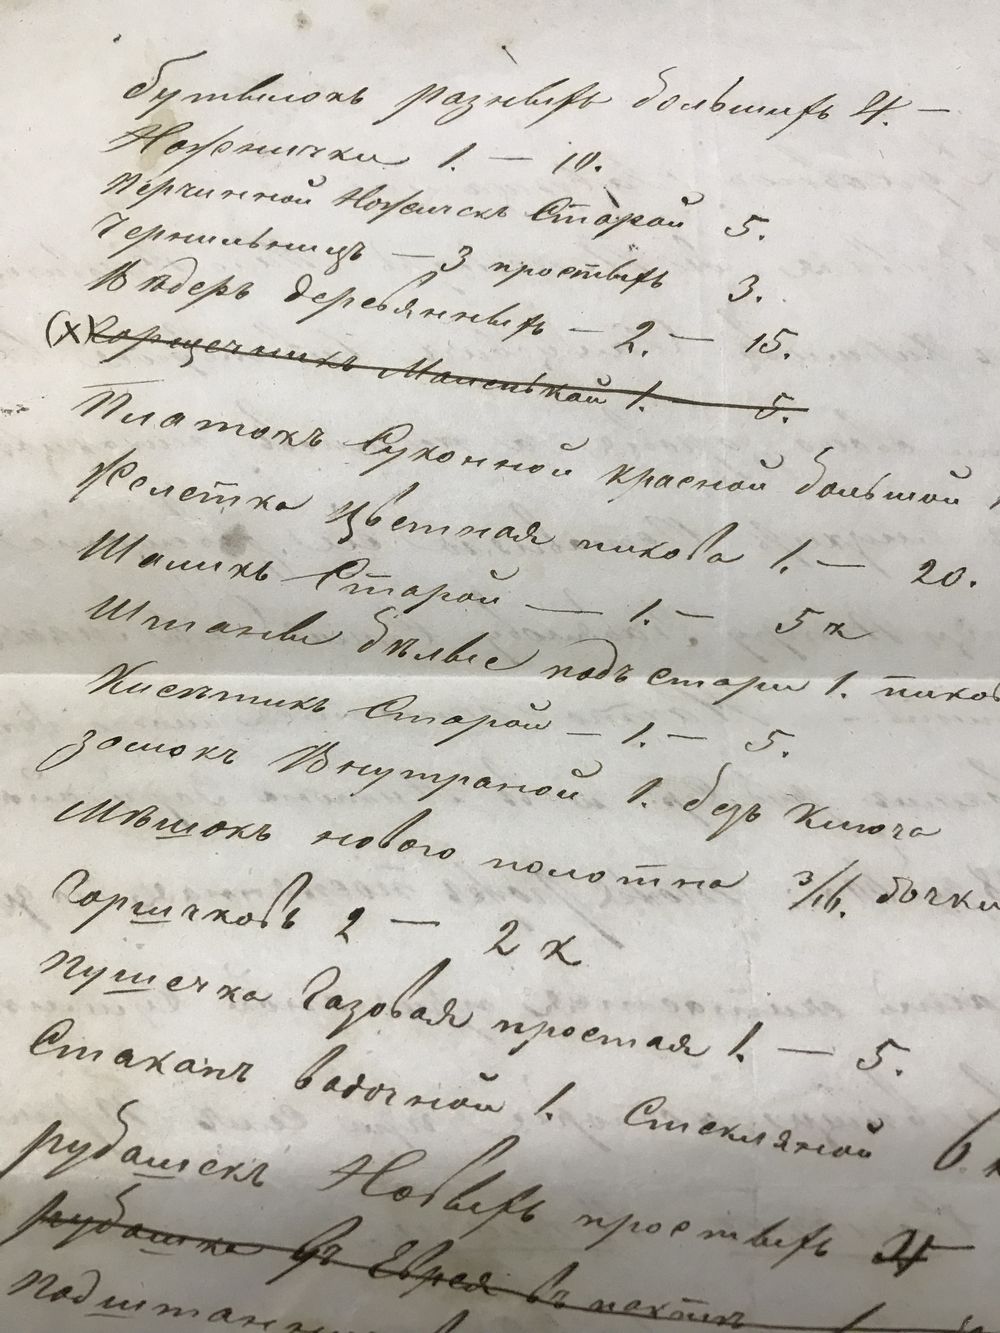 бутылокъ разныхъ большихъ 4. —
Ножнички 1. — 10.
Перчинной Ножичекъ Старой 5.
Чернильницъ — 3 простыхъ 3.
Вѣдеръ деревянныхъ — 2. — 15.
(х) Маленькой 1. 5.
Платокъ Суконной красной большой
Жилетка цветная пикова 1. — 20.
Шаликъ Старой — 1. — 5 к
Штаны бѣлые подъ стары 1.
Кисѣтикъ Старой — 1. — 5.
Замокъ Внутраной 1. безъ Ключа
Мѣшокъ нового полотна бочки
Горшчковъ 2 — 2 к
Пушечка Газовая простая 1. — 5.
Стаканъ водочной 1. Стекляной 6.
рубашекъ Новыхъ простыхъ 4 —
рубашка